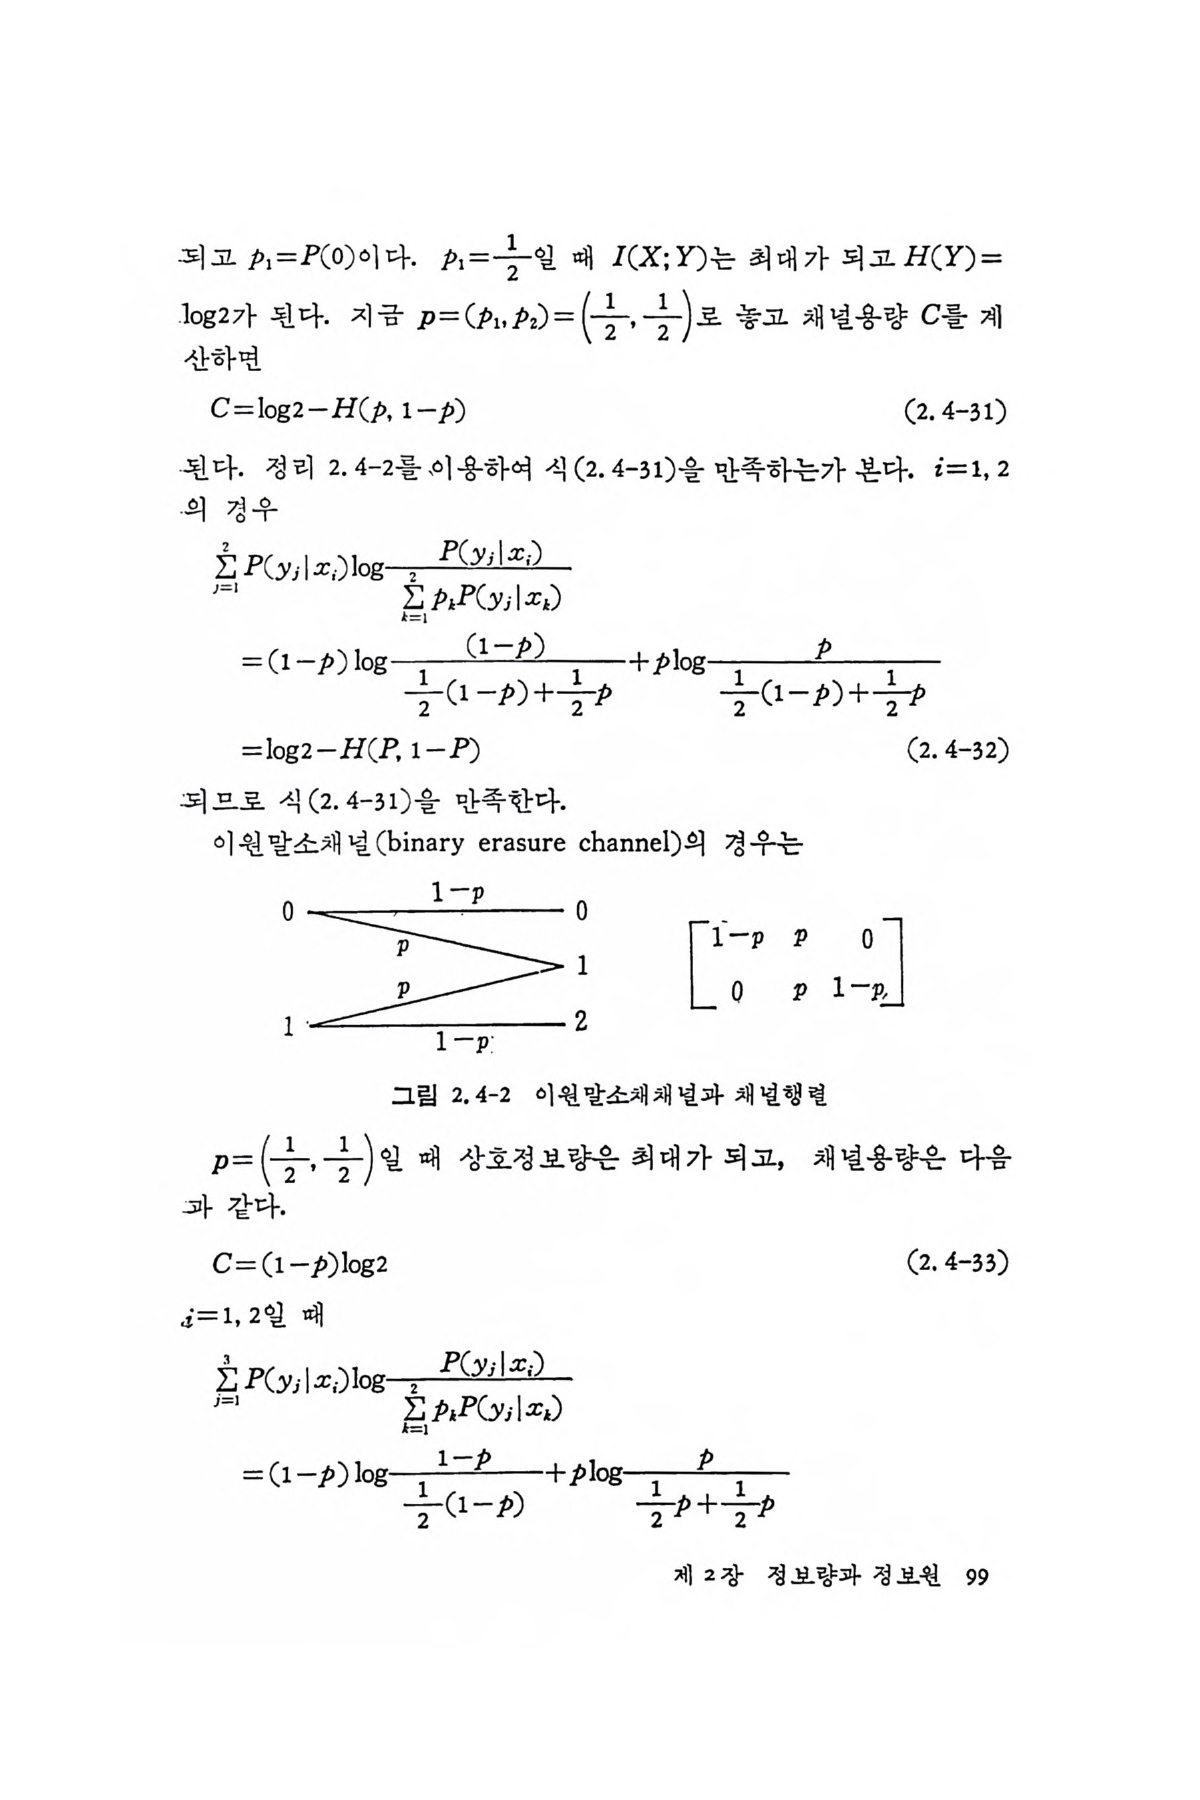 되고 p₁=P(0)이다. p₁=1/2일 때 I(X;Y)는 최대가 되고 H(Y)=
log2가 된다. 지금 p=(p₁, p₂)=(1/2, 1/2)로 놓고 채널용량 C를 계
산하면
C=log2−H(p, 1−p) (2. 4-31)
된다. 정리 2. 4-2를 이용하여 식(2. 4-31)을 만족하는가 본다. i=1, 2
의 경우
∑_{j=1}^{2} P(y_j|x_i)log P(y_j|x_i)/∑_{k=1}^{2} p_kP(y_j|x_k)
=(1−p)log (1−p)/(1/2(1−p)+1/2p) +plog p/(1/2(1−p)+1/2p)
=log2−H(P, 1−P) (2. 4-32)
되므로 식(2. 4-31)을 만족한다.
이원말소채널(binary erasure channel)의 경우는
1−p
0 0
p
1
p
1 2
1−p
1−p p 0
0 p 1−p
그림 2. 4-2 이원말소채채널과 채널행렬
p=(1/2, 1/2)일 때 상호정보량은 최대가 되고, 채널용량은 다음
과 같다.
C=(1−p)log2 (2. 4-33)
i=1, 2일 때
∑_{j=1}^{3} P(y_j|x_i)log P(y_j|x_i)/∑_{k=1}^{2} p_kP(y_j|x_k)
=(1−p)log 1−p/(1/2(1−p)) +plog p/(1/2p+1/2p)
제 2 장 정보량과 정보원 99